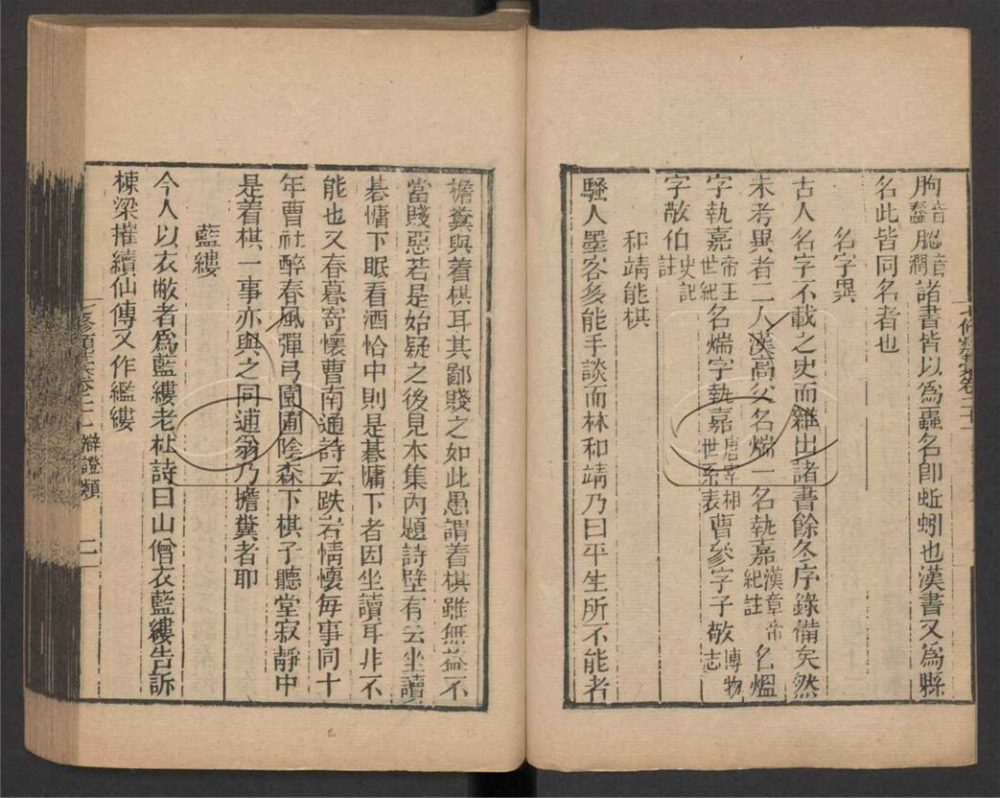 朐音蠢䏰音潤諸書皆以為蟲名即蚯蚓也漢書又為縣
名此皆同名者也
名字異
古人名字不載之史而雜出諸書餘冬序錄備矣然
未考異者二人漢高父名煓一名執嘉漢章帝紀註名熅
字執嘉帝王世紀名煓字執嘉唐宰相世系表曹參字子敬博物志
字敬伯史記註
和靖能棋
騷人墨客多能手談而林和靖乃曰平生所不能者
擔糞與着棋耳其鄙賤之如此愚謂着棋雖無益不
當賤惡若是始疑之後見本集內題詩壁有云坐讀
碁慵下眠看酒恰中則是碁慵下者因坐讀耳非不
能也又春暮寄懷曹南通詩云跌宕情懷每事同十
年曹社醉春風彈弓園圃陰森下棋子聽堂寂靜中
是着棋一事亦與之同逋翁乃擔糞者耶
藍縷
今人以衣敝者為藍縷老杜詩曰山僧衣藍縷告訴
棟梁摧續仙傳又作繿縷
七修類藁卷二十 辯證類 二